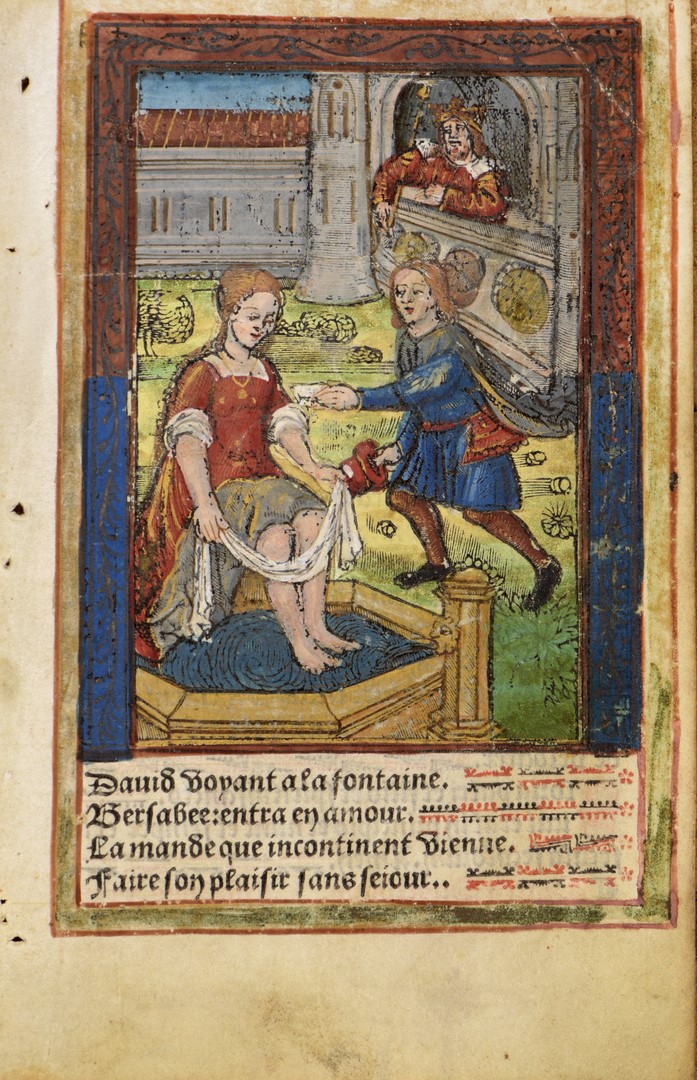 Dauid voyant a la fontaine.
Bersabee: entra en amour.
La mande que incontinent vienne.
Faire son plaisir sans seiour..